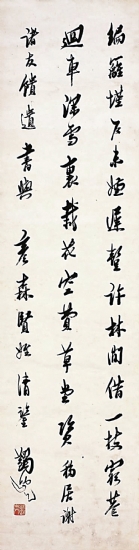 編籬堪石未嫌遲暫許林間借一枝寂莫
迴車深雪裏栽花空費草堂資 移居謝
諸友饋遺書與 彥森賢姪清鑒